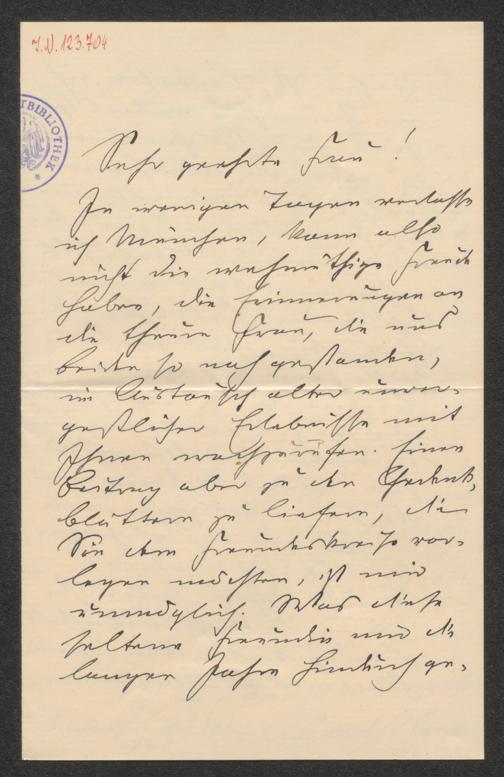 J.N. 123.704
TBIBLIOTHEK
Sehr geehrte Frau!
In wenigen Tagen verlasse
ich München, kann also
nicht die wehmüthige Freude
haben, die Erinnerungen an
die theure Frau, die uns
beiden so nah gestanden,
im Austausch alter unver-
geßlicher Erlebnisse mit
Ihnen wachzurufen. Einen
Beitrag aber zu den Gedenk-
blättern zu liefern, die
Sie dem Freundeskreise vor-
legen möchten, ist mir
unmöglich. Was diese
seltene Freundin mir die
langen Jahre hindurch ge-